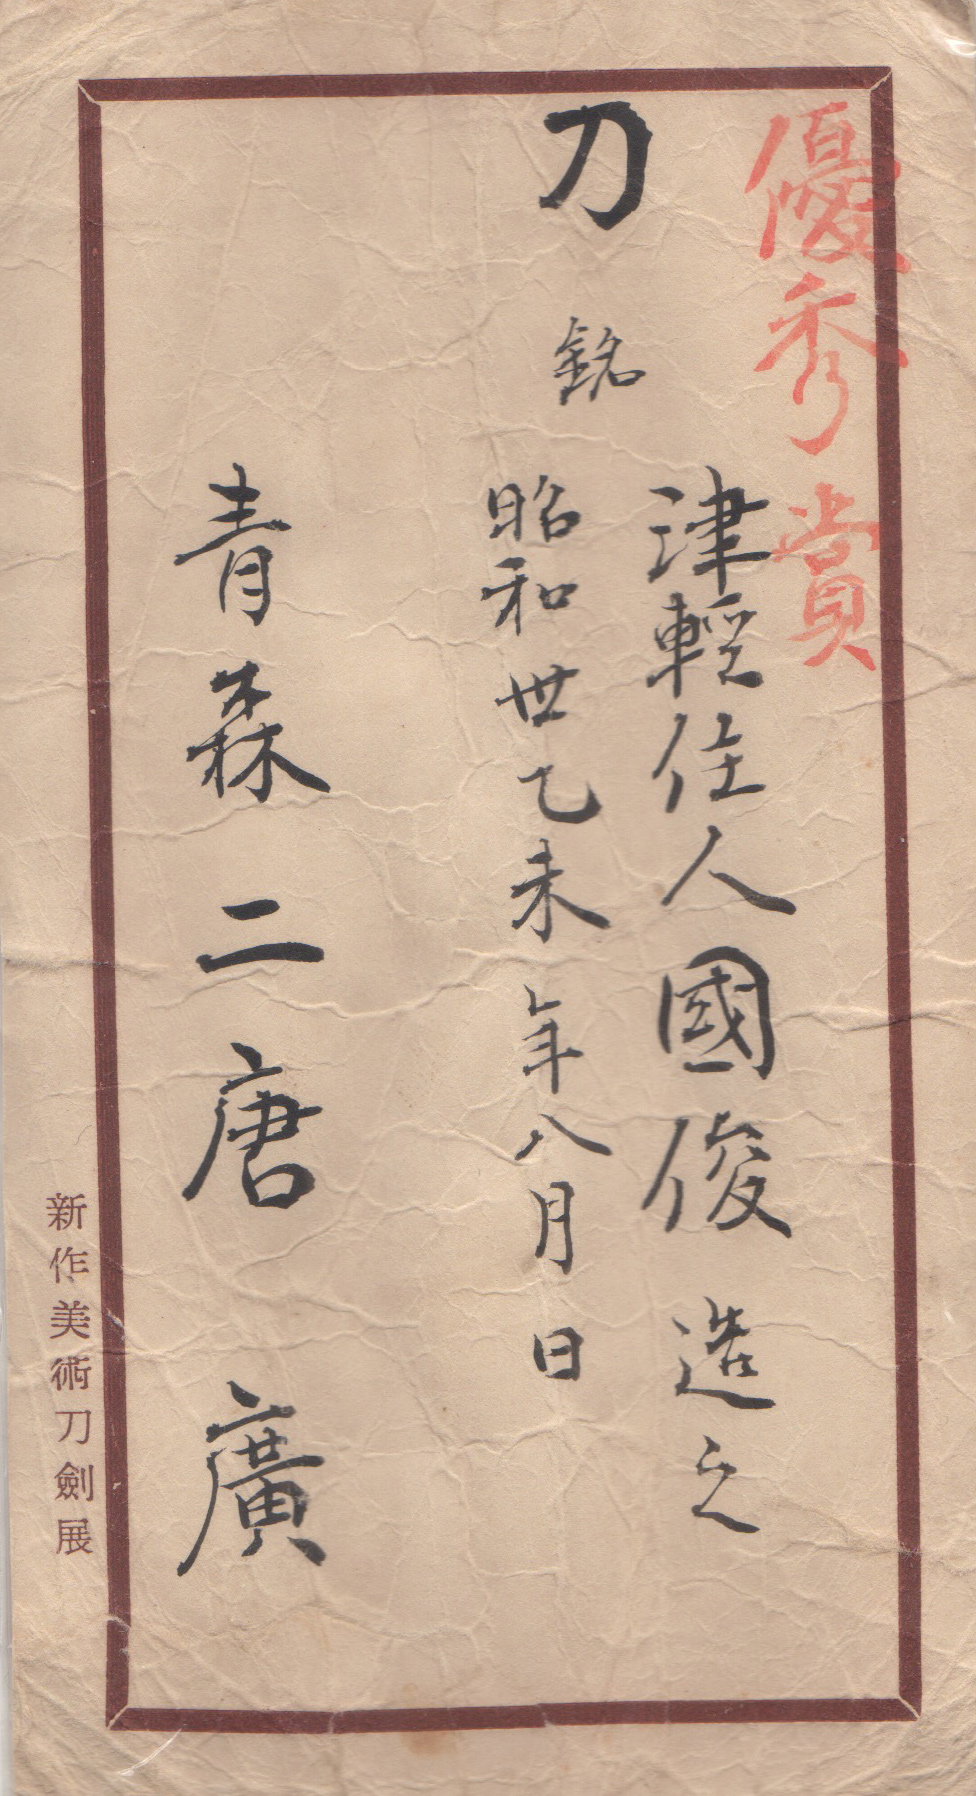 優秀賞
刀 銘
津輕住人國俊造之
昭和世乙未年八月日
青森 二唐 廣
新作美術刀劍展